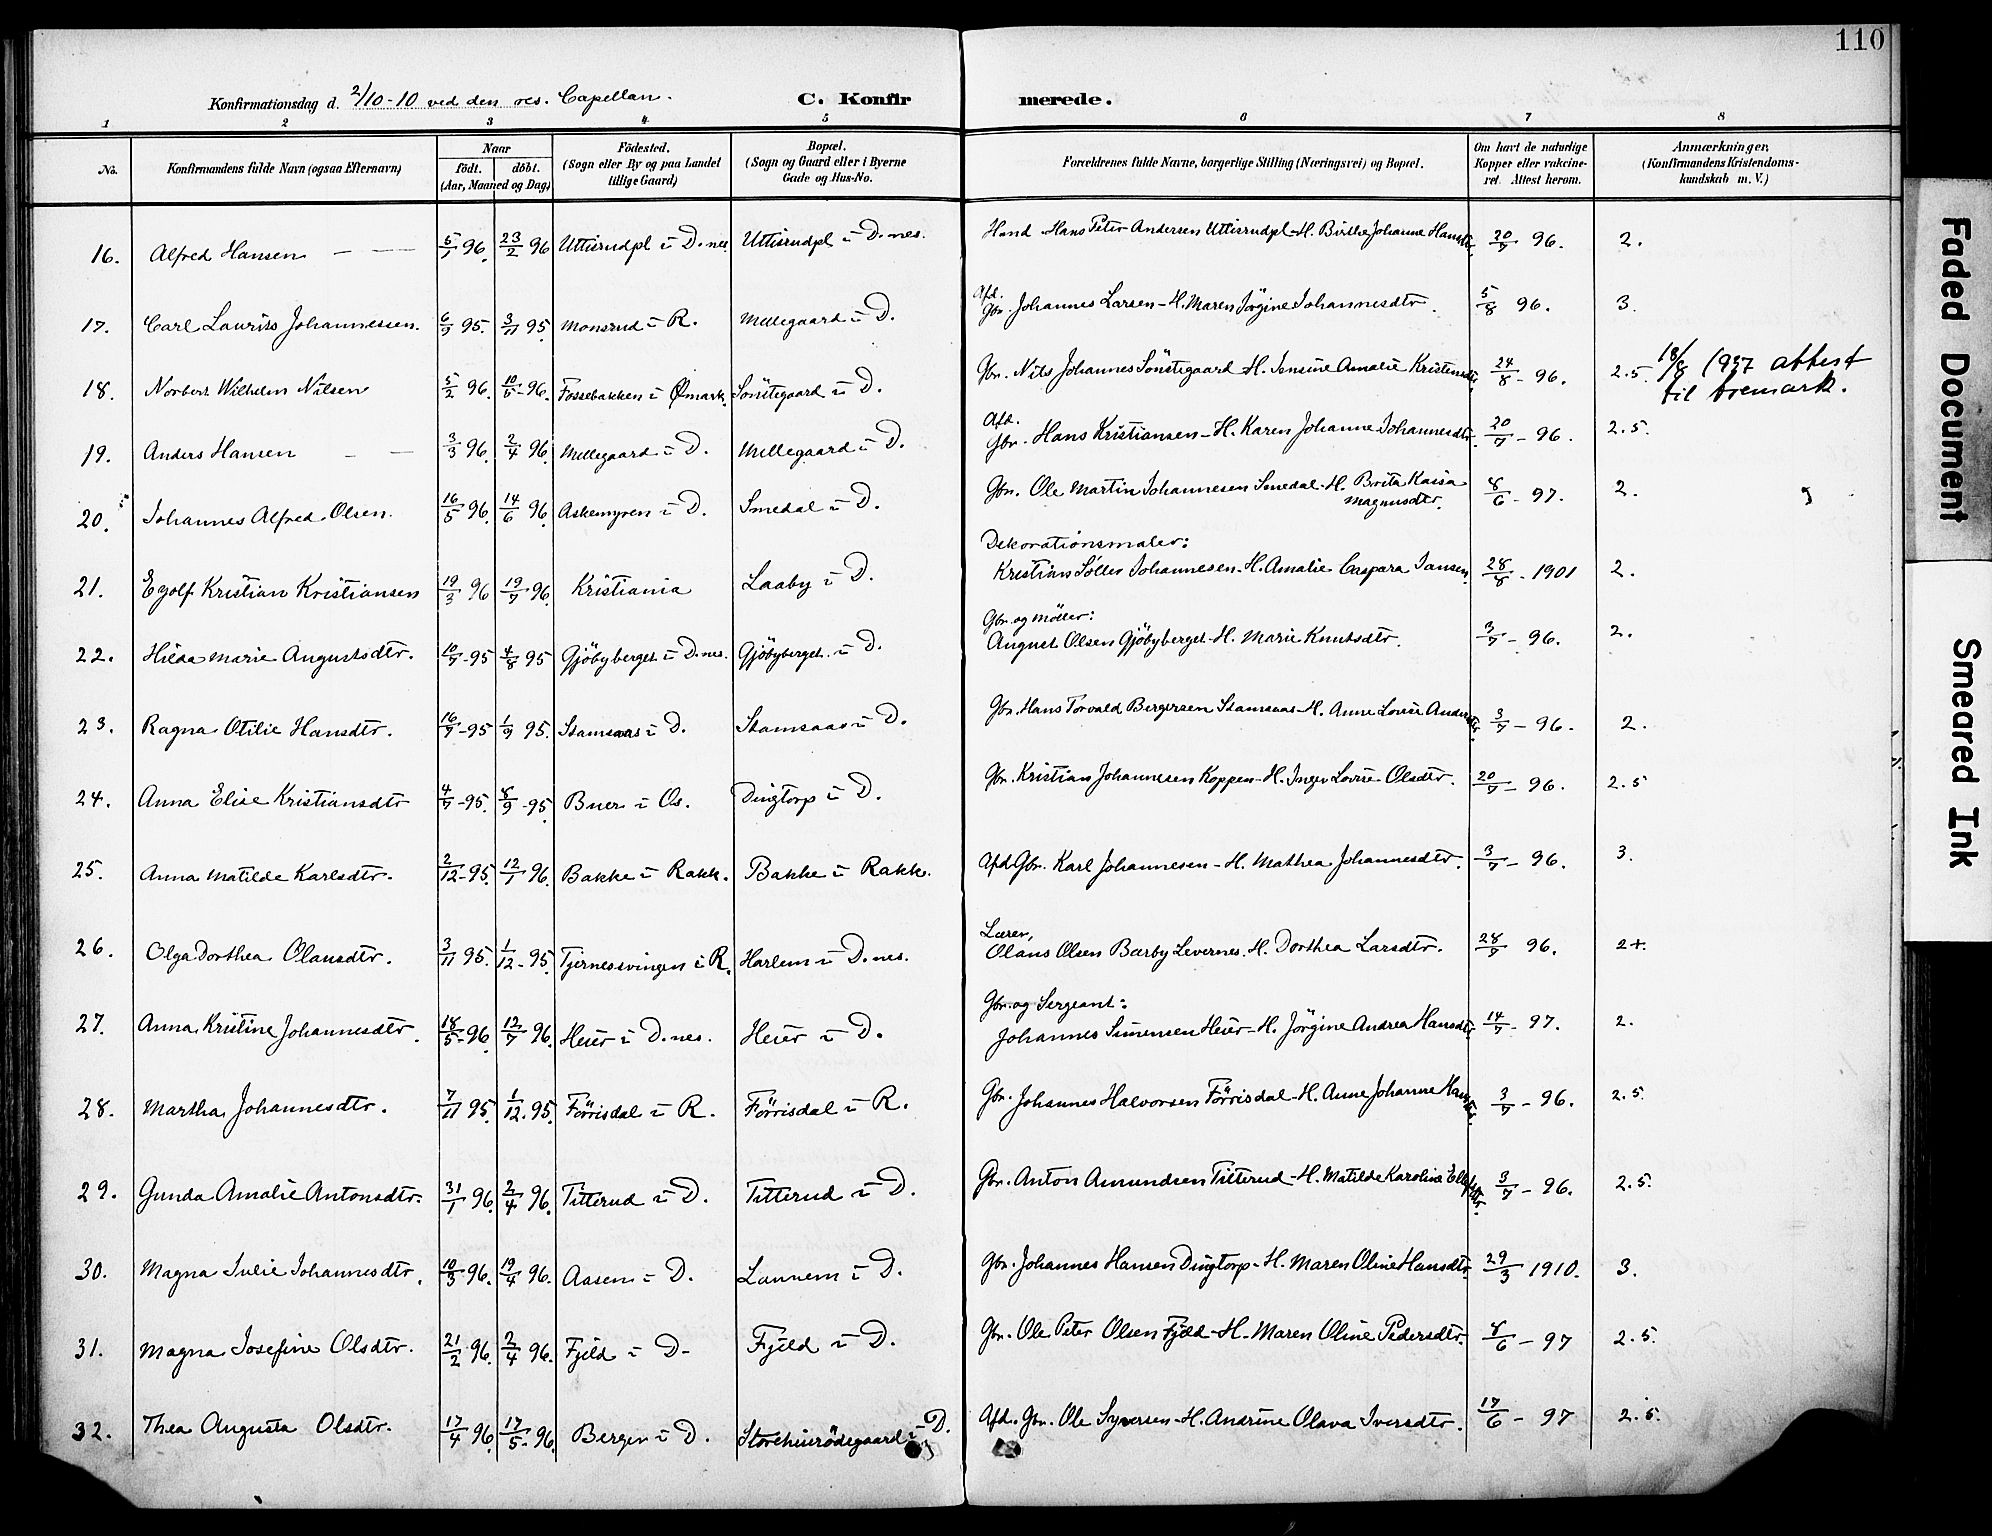 110
Konfirmationsdag d. 2/10-10 ved den res. Capellan. C. Konfir merede.
1 2 3 4 5 6 7 8
No. Konfirmandens fulde Navn (ogsaa Efternavn) Naar födt. döbt. (Aar, Maaned og Dag) Födested. (Sogn eller By og paa Landet tillige Gaard) Bopæl. (Sogn og Gaard eller i Byerne Gade og Hus-No. Forældrenes fulde Navne, borgerlige Stilling (Næringsvei) og Bopæl. Om havt de naturlige Kopper eller vaccineret. Attest herom. Anmærkninger, (Konfirmandens Kristendomskundskab m. V.)
16. Alfred Hansen — — 5/1 96. 23/2 96 Uttisrudpl i D.nes Uttisrudpl i D.nes. Hans Peter Andersen Uttisrudpl-H. Birthe Johanne Hansdtr. 20/7 96. 2.
17. Carl Laurits Johannessen. 6/9 95. 3/11 95 Monsrud i R. Mellegaard i D. Afd. Gbr. Johannes Larsen-H. Maren Jörgine Johannesdtr. 5/8 96. 3.
18. Norbert Wilhelm Nilsen 5/2 96. 10/5-96. Fossebakken i Ømark. Sönstegaard i D. Gbr. Nils Johannes Sönstegaard-H. Jensine Amalie Kristensdtr. 24/8-96. 2.5. 18/8 1937 attest
til bremark.
19. Anders Hansen — — 3/3 96. 2/4 96. Mellegaard i D. Mellegaard i D. Afd. Gbr. Hans Kristiansen-H. Karen Johanne Johannesdtr. 20/7-96. 2.5.
20. Johannes Alfred Olsen. 16/5 96. 14/6 96. Askemyren i D. Smedal i D. Gbr. Ole Martin Johannesen Smedal-H. Brita Kaisa Magnusdtr. 8/6-97. 2.
21. Egolf Kristian Kristiansen 19/3 96 19/7 96. Kristiania Laaby i D. Dekorationsmaler: Kristian Söller Johannesen-H. Amalie Caspara Jansen. 28/8-1901 2.
22. Hilda Marie Augustsdtr. 10/7-95 4/8 95 Gjöbyberget i D.nes. Gjöbyberget i D. Gbr. og Möller: August Olsen Gjöbyberget-H. Marie Knutsdtr. 3/7-96. 2.
23. Ragna Otilie Hansdtr. 16/7-95 1/9 95. Stamsaas i D. Stamsaas i D. Gbr. Hans Torvald Bergersen Stamsaas-H. Anne Lovise Andersdtr. 3/7-96. 2.
24. Anna Elise Kristiansdtr 4/7-95. 8/9-95. Buer i Os. Dingtorp i D. Gbr. Kristian Johannesen Koppen-H. Inger Lovise Olsdtr. 20/7-96. 2.5
25. Anna Matilde Karlsdtr. 2/12-95. 12/1 96. Bakke i Rakk. Bakke i Rakk. Afd. Gbr. Karl Johannesen-H. Mathea Johannesdtr. 3/7-96. 3.
26. Olga Dorthea Olausdtr. 3/11 95. 1/12-95. Tjernessvingen i R. Harlem i D.nes. Lærer, Olaus Olsen Bærby Levernes. H. Dorthea Larsdtr. 28/7 96. 2+.
27. Anna Kristine Johannesdtr. 18/5-96. 12/7 96. Heier i D.nes. Heier i D. Gbr. og Sergeant: Johannes Simensen Heier-H. Jörgine Andrea Hansdtr. 14/7-97. 2.
28. Martha Johannesdtr. 7/11 95. 1/12.95. Förrisdal i R. Förrisdal i R. Gbr. Johannes Halvorsen Förrisdal-H. Anne Johanne Hansdtr. 3/7-96. 2.5.
29. Gunda Amalie Antonsdtr. 31/1 96. 2/4 96. Titterud i D. Titterud i D. Gbr. Anton Amundsen Titterud-H. Matilde Karoline 3/7-96. 2.5.
30. Magna Julie Johannesdtr. 10/3 96. 19/4 96. Aasem i D. Lannem i D. Gbr. Johannes Hansen Dingtorp-H. Maren Oline Hansdtr. 29/3 1910. 3.
31. Magna Josefine Olsdtr. 21/2 96. 2/4 96. Fjeld i D- Fjeld i D. Gbr. Ole Peter Olsen Fjeld-H. Maren Oline Pedersdtr. 8/6-97 2.5.
32. Thea Augusta Olsdtr. 17/4 96. 17/5-96. Bergen i D. i D. Afd. Gbr. Ole Syversen-H. Andrine Olava Iversdtr. 17/6-97 2.5.
Faded Document
Smeared Ink